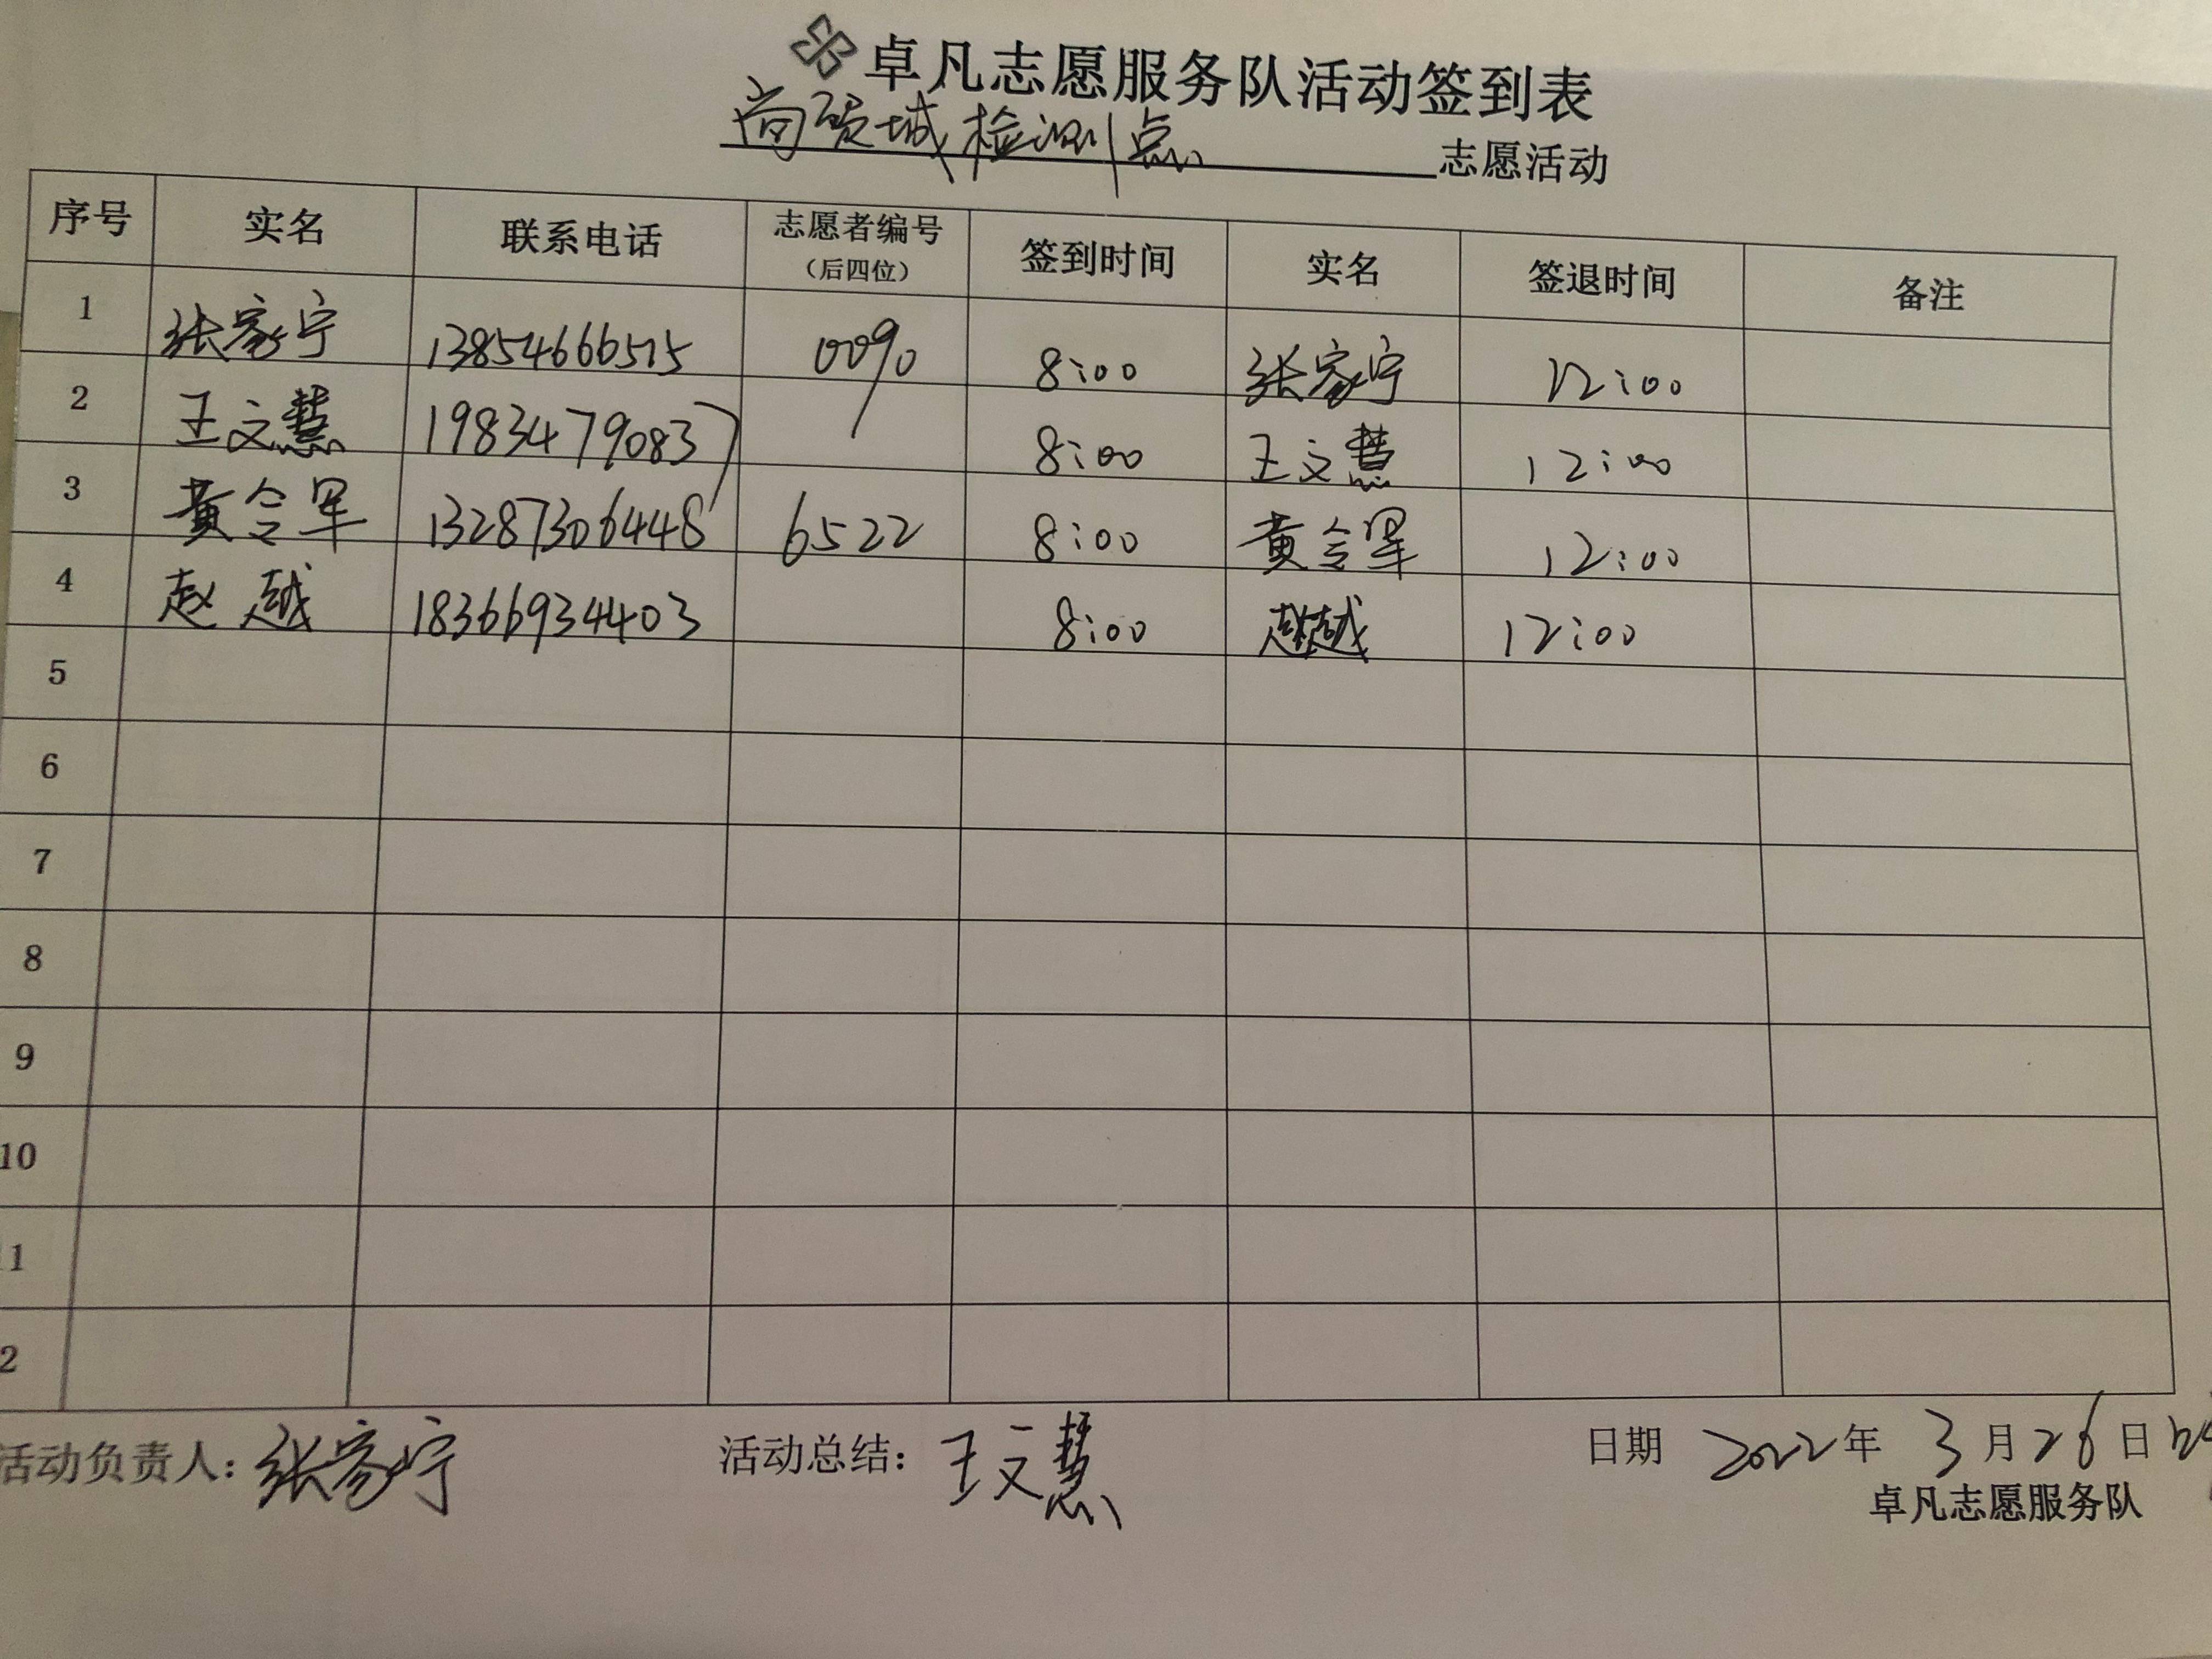 卓凡志愿服务队活动签到表
尚硕城检测点 志愿活动
序号 实名 联系电话 志愿者编号（后四位） 签到时间 实名 签退时间 备注
1 张家宁 13854666515 0090 8:00 张家宁 12:00
2 王文慧 19834790837 8:00 王文慧 12:00
3 黄令军 13287306448 6522 8:00 黄令军 12:00
4 赵越 18366934403 8:00 赵越 12:00
5
6
7
8
9
10
1
2
活动负责人：张家宁 活动总结：王文慧 日期 2022年3月26日
卓凡志愿服务队